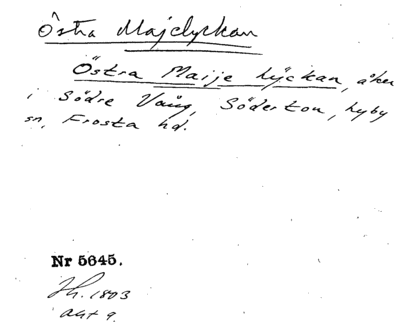 Östra Majelyckan
Östra Maije Lyckan, åker
i Södre Vång, Södertou, Hyby
sn, Frosta hd.
Nr 5645.
Jh. 1803
akt 9.